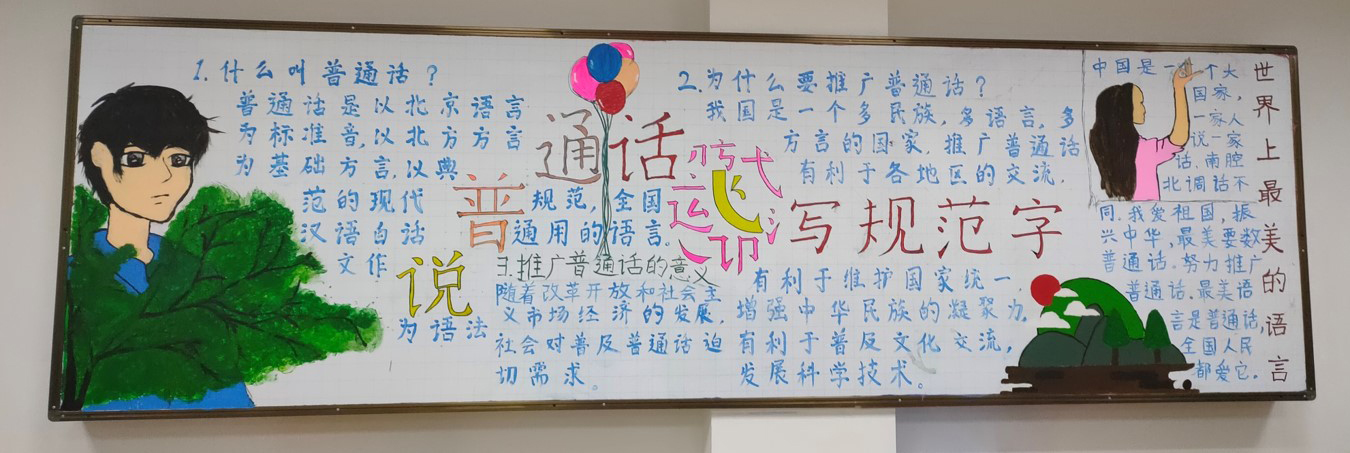 1.什么叫普通话？
普通话是以北京语言
为标准音,以北方方言
为基础方言,以典
范的现代
汉语白话
文作
为语法
规范,全国
通用的语言。
说
普
通话
写规范字
2.为什么要推广普通话？
我国是一个多民族,多语言,多
方言的国家.推广普通话
有利于各地区的交流.
有利于维护国家统一
增强中华民族的凝聚力,
有利于普及文化交流,
发展科学技术。
3.推广普通话的意义
随着改革开放和社会主
义市场经济的发展,
社会对普及普通话迫
切需求。
世界上最美的语言
中国是一个大
国家,
一家人
说一家
话.南腔
北调话不
同.我爱祖国,振
兴中华,最美要数
普通话.努力推广
普通话,最美语
言是普通话,
全国人民
都爱它.